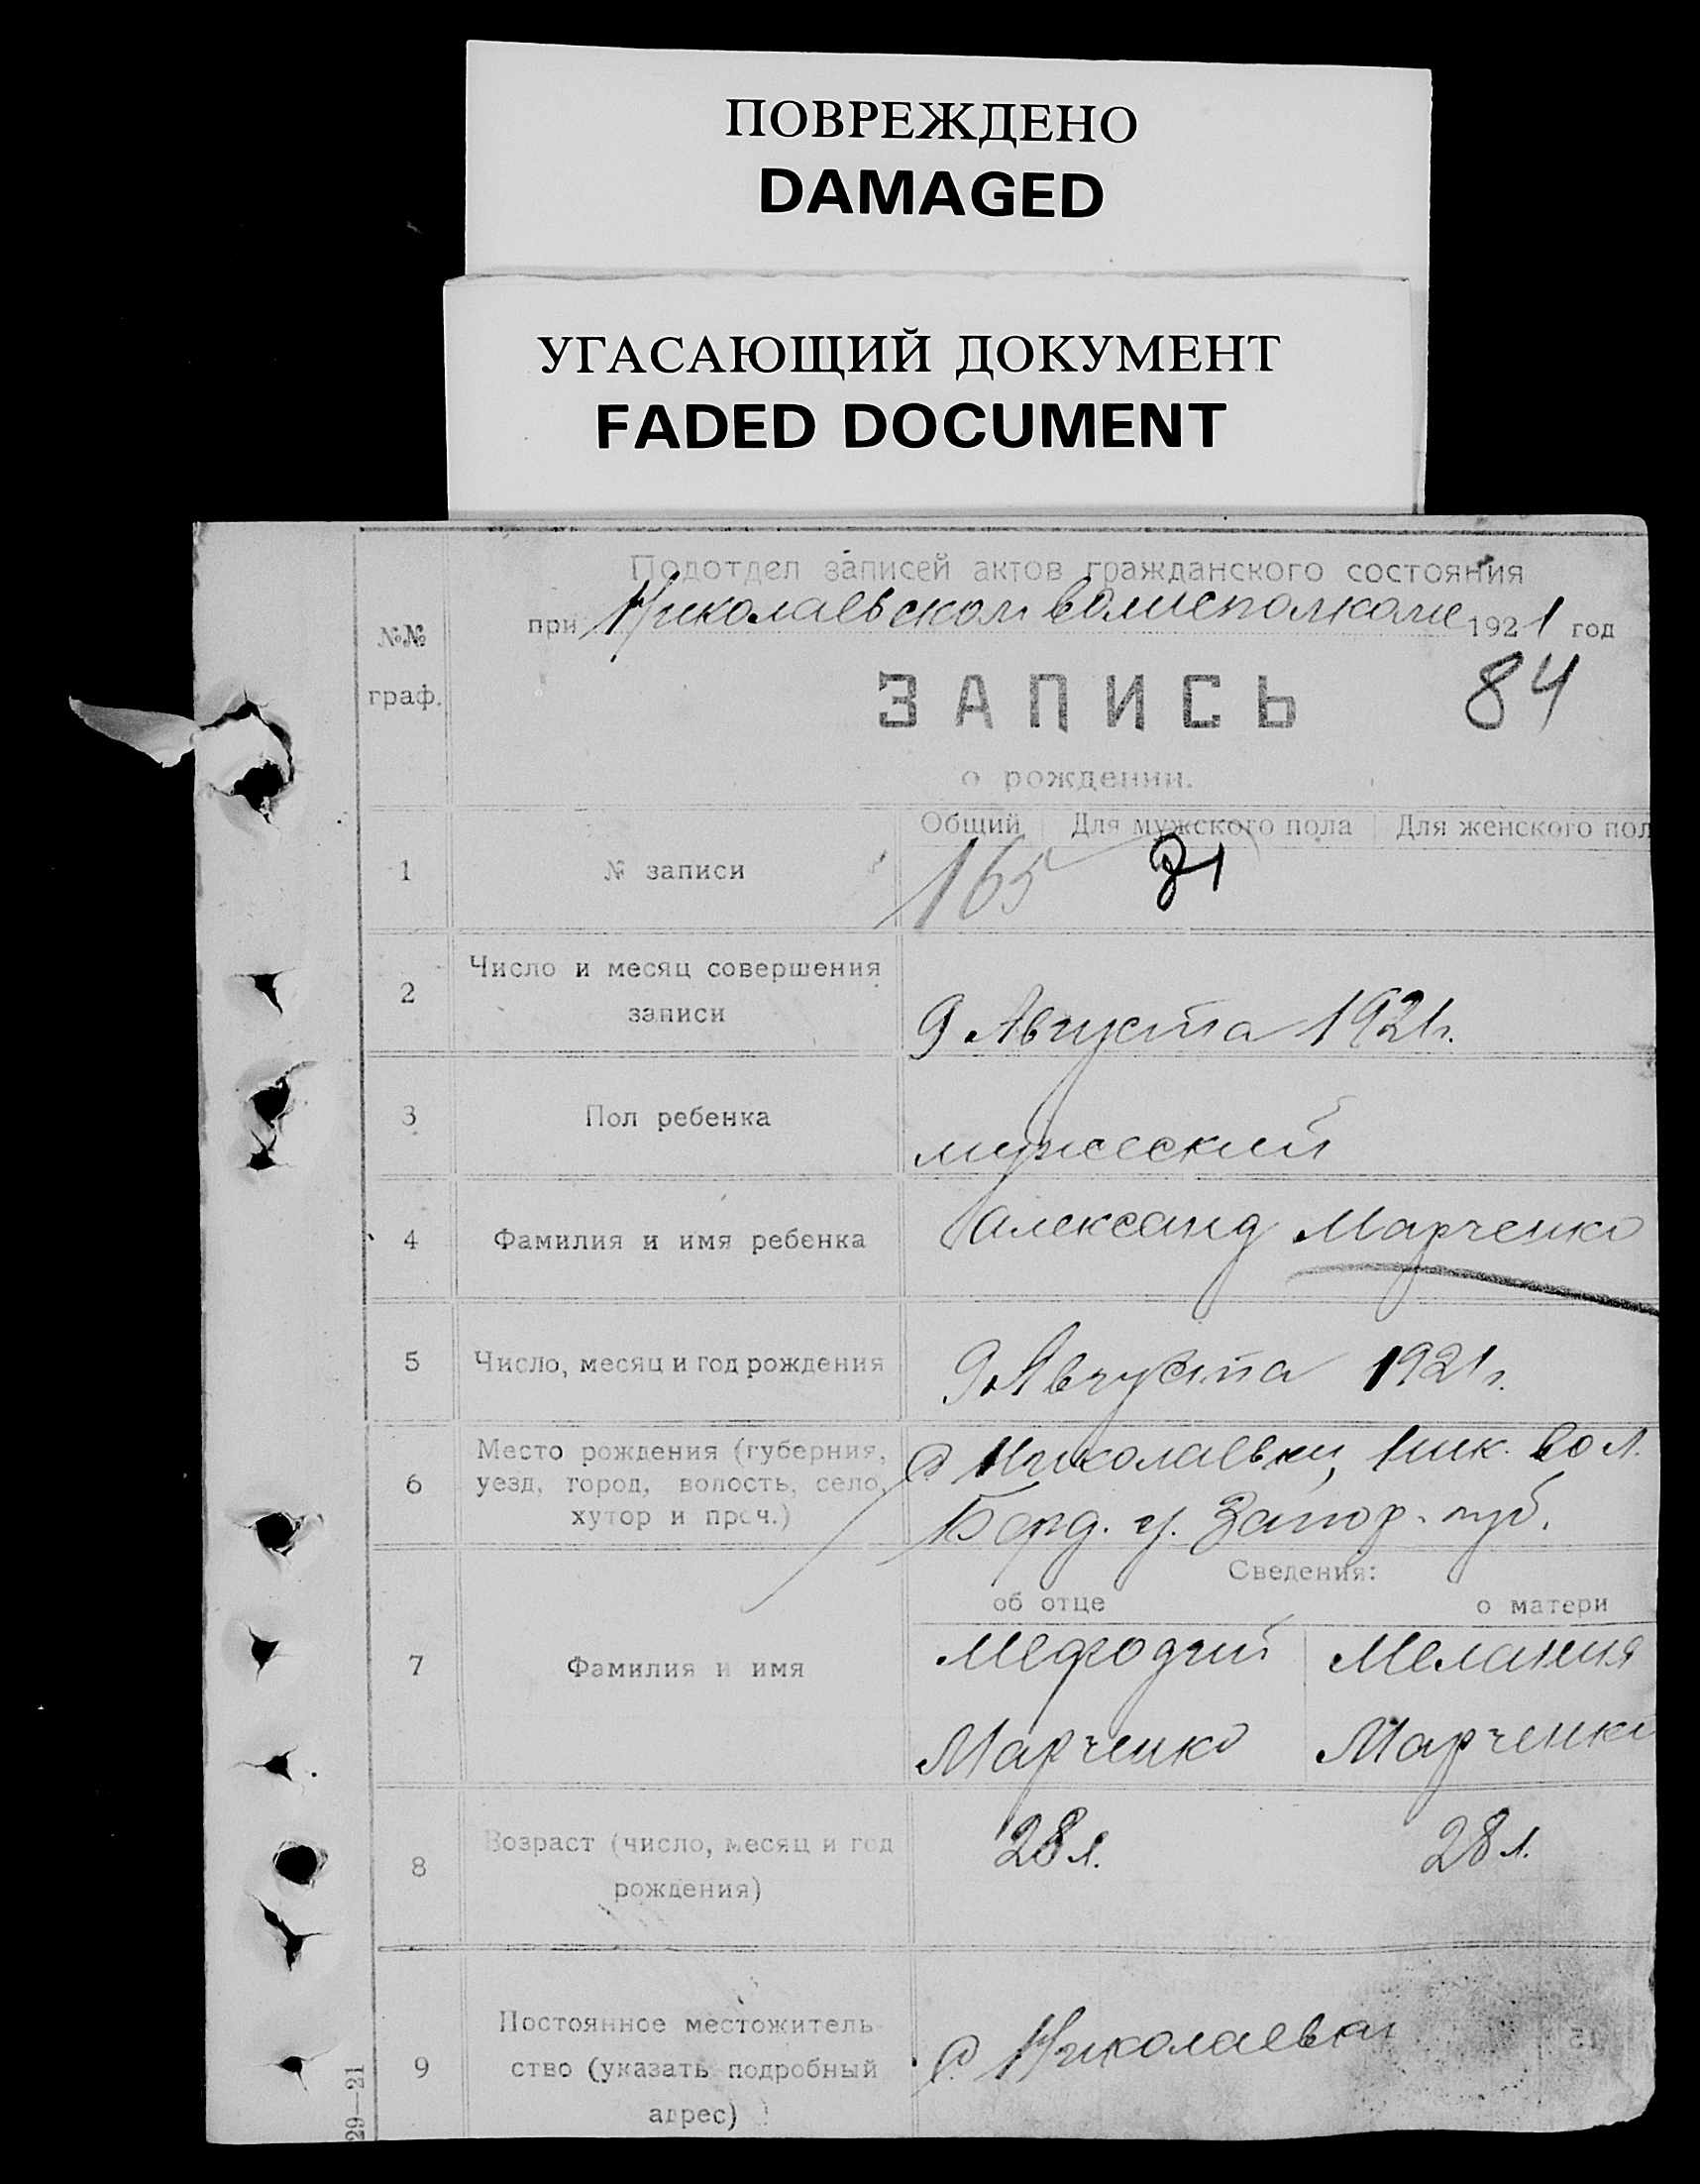 ПОВРЕЖДЕНО
DAMAGED
УГАСАЮЩИЙ ДОКУМЕНТ
FADED DOCUMENT
Подотдел записей актов гражданского состояния
при Николаевском волисполкоме 1921 год
№№
граф.
ЗАПИСЬ 84
о рождении.
Общий Для мужского пола Для женского пол
1 № записи 165
2 Число и месяц совершения
записи
9 Августа 1921 г.
3 Пол ребенка мужеский
4 Фамилия и имя ребенка Александ Марченко
5 Число, месяц и год рождения 9 Августа 1921 г.
6 Место рождения (губерния,
уезд, город, волость, село,
хутор и проч.)
с Николаевки, Ник. вол.
Берд. у. Запор. губ.
Сведения:
об отце о матери
7 Фамилия и имя
Мефодий Мелания
Марченко Марченко
8 Возраст (число, месяц и год
рождения)
28 л. 28 л.
9 Постоянное местожитель-
ство (указать подробный
адрес)
с. Николаевка
29—21